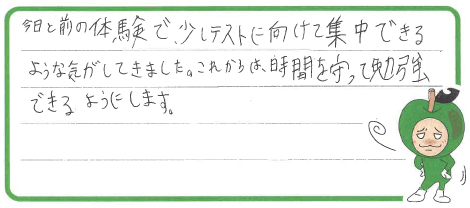 今日と前の体験で、少しテストに向けて集中できる
ような気がしてきました。これからは、時間を守って勉強
できるようにします。